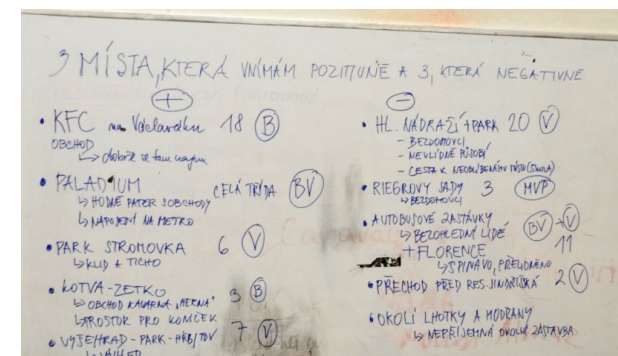 3 MÍSTA, KTERÁ VNÍMÁM POZITIVNĚ A 3, KTERÁ NEGATIVNĚ
+
• KFC na Václaváku 18 B
OBCHOD
↳ dobře se tam najím
• PALADIUM CELÁ TŘÍDA BV
↳ HODNĚ PATER S OBCHODY
↳ NAPOJENÍ NA METRO
• PARK STROMOVKA 6 V
↳ KLID A TICHO
• KOTVA-ZETKO 3 B
↳ OBCHOD KAVÁRNA „HERNA"
↳ PROSTOR PRO KONÍČEK
• VYŠEHRAD-PARK-HŘBITOV 7 V
-
• HL. NÁDRAŽÍ + PARK 20 V
- BEZDOMOVCI
- NEVLÍDNĚ PŮSOBÍ
- CESTA K NEOBLÍBENÉMU MÍSTU (ŠKOLA)
• RIEGROVY SADY 3 MVP
↳ BEZDOMOVCI
• AUTOBUSOVÉ ZASTÁVKY BV → V
↳ BEZOHLEDNÍ LIDÉ
+ FLORENCE 11
↳ ŠPINAVO, PŘELIDNĚNO
• PŘECHOD PŘED RES. JINDŘIŠSKÁ 2 V
• OKOLÍ LHOTKY A MODŘANY
↳ NEPŘÍJEMNÁ OKOLNÍ ZÁSTAVBA